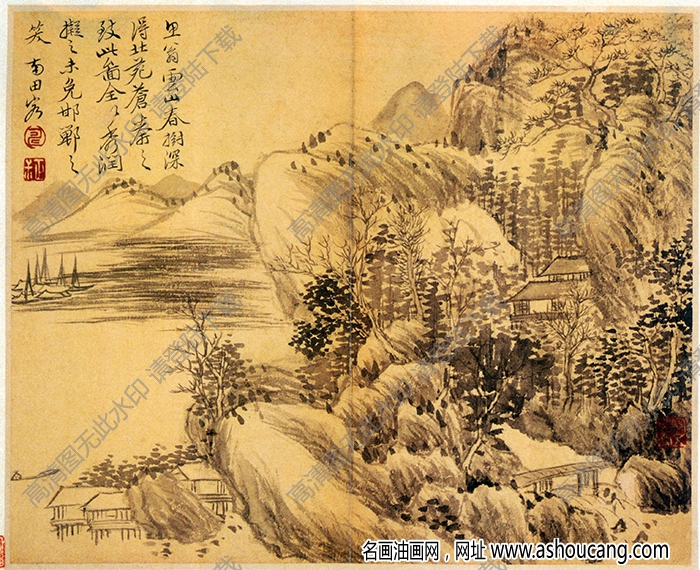 思翁雲山春樹深
得北苑蒼莽之
致此啚全以秀潤
擬之未免邯鄲之
笑 南田客
高清图无此水印 请登陆下载
名画油画网，网址 www.ashoucang.com